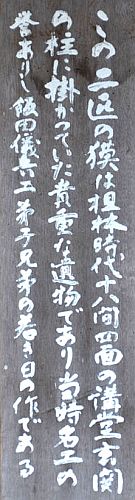 この二区の獏は担林時代十八間四面の講堂玄関
の柱に掛かっていた貴重な遺物であり当時名工の
誉ありし飯田儀兵エ弟子兄弟の若き日の作である